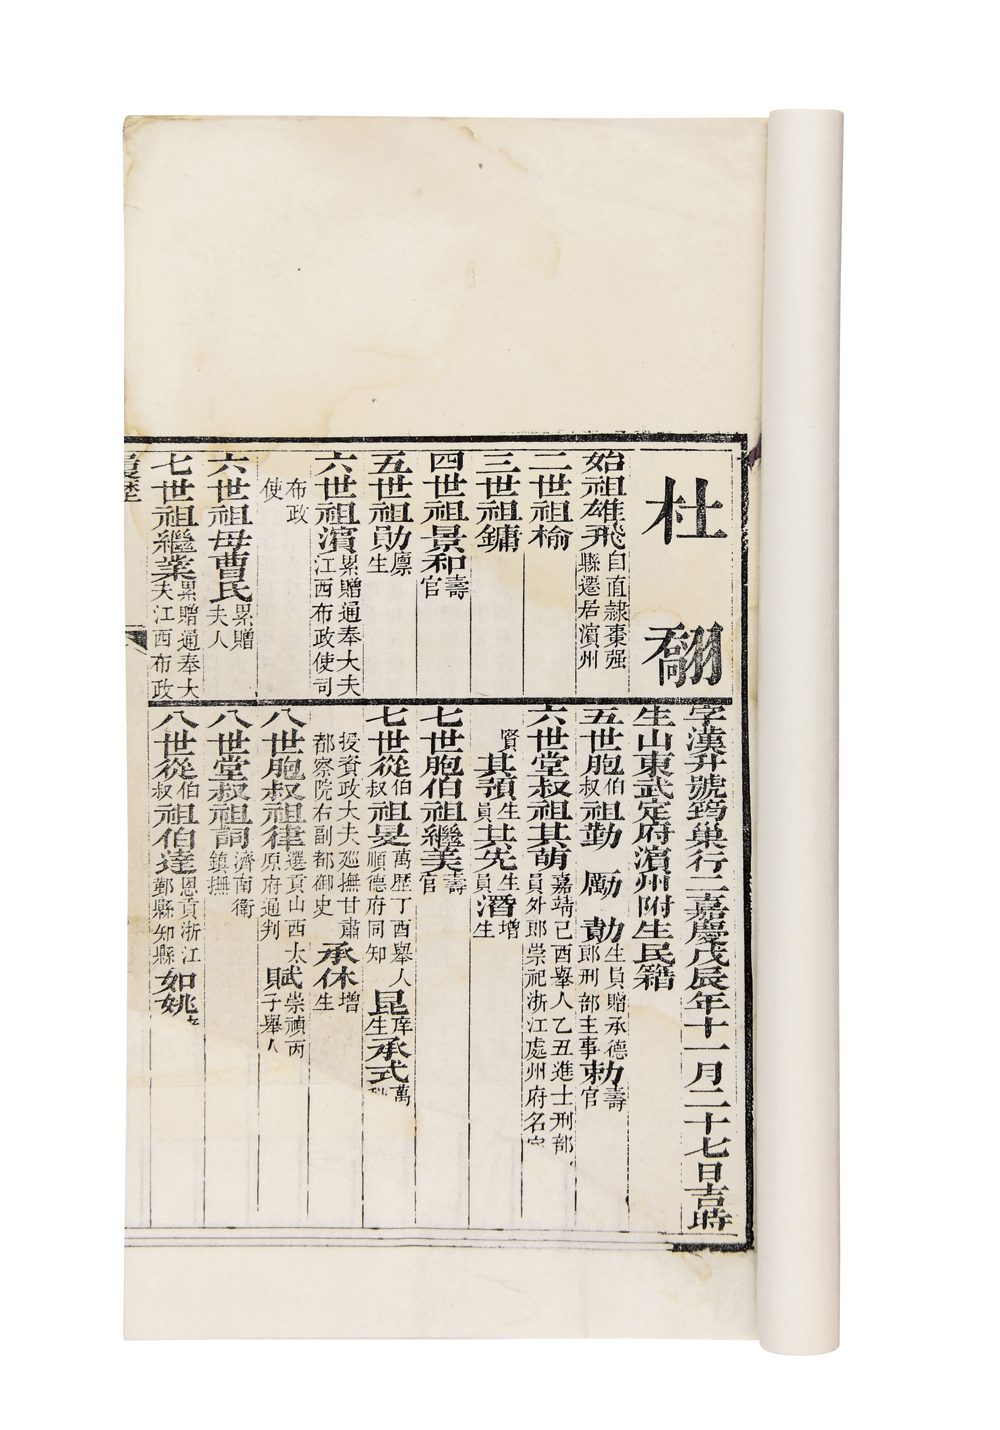 杜　翮
字漢升號筠巢行二嘉慶戊辰年十一月二十七日吉時
生山東武定府濱州附生民籍
始祖雄飛自直隷棗强
縣遷居濱州
二世祖榆
三世祖鏞
四世祖景和壽
官
五世祖勛廪
生
六世祖濱累贈通奉大夫
江西布政使司
布政
使
六世祖母曹氏累贈
夫人
七世祖繼業累贈通奉大
夫江西布政
五世胞伯
叔祖勤　勵　勣生員贈承德
郎刑部主事勑壽
官
六世堂叔祖其萌嘉靖己酉舉人乙丑進士刑部
員外郎崇祀浙江處州府名宦
賢其領生
員其先生
員潛增
生
七世胞伯祖繼美壽
官
七世從伯
叔祖旻萬歷丁酉舉人
順德府同知昆庠
生承式萬
授資政大夫廵撫甘肅
都察院右副都御史承休增
生
八世胞叔祖律選貢山西太
原府通判賦崇禎丙
子舉人
八世堂叔祖詞濟南衛
鎮撫
八世從伯
叔祖伯達恩貢浙江
鄞縣知縣如姚
履歷